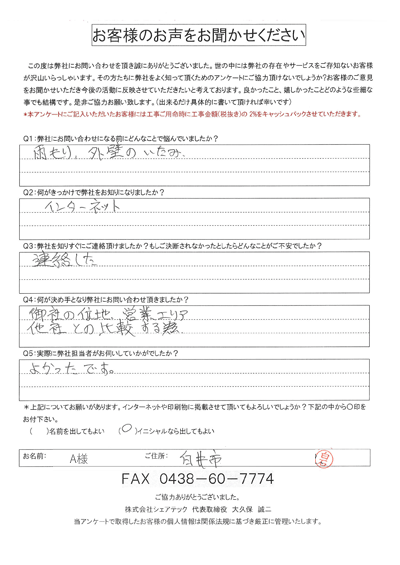 お客様のお声をお聞かせください
この度は弊社にお問い合わせを頂き誠にありがとうございました。世の中には弊社の存在やサービスをご存知ないお客様
が沢山いらっしゃいます。その方たちに弊社をよく知って頂くためのアンケートにご協力頂けないでしょうか?お客様のご意見
をお聞かせいただき今後の活動に反映させていただきたいと考えております。良かったこと、嬉しかったことどのような些細な
事でも結構です。是非ご協力お願い致します。（出来るだけ具体的に書いて頂ければ幸いです）
*本アンケートにご記入いただいたお客様には工事ご用命時に工事金額(税抜き)の 2%をキャッシュバックさせていただきます。
Q1:弊社にお問い合わせになる前にどんなことで悩んでいましたか?
雨もり、外壁のいたみ、
Q2:何がきっかけで弊社をお知りになりましたか?
インターネット
Q3:弊社を知りすぐにご連絡頂けましたか?もしご決断されなかったとしたらどんなことがご不安でしたか?
連絡した
Q4:何が決め手となり弊社にお問い合わせ頂きましたか?
御社の位地、営業エリア
他社との比較する為
Q5:実際に弊社担当者がお伺いしていかがでしたか?
よかったです。
*上記についてお願いがあります。インターネットや印刷物に掲載させて頂いてもよろしいでしょうか?下記の中から〇印を
お付下さい。
(　)名前を出してもよい　(〇)イニシャルなら出してもよい
お名前: A様 ご住所: 白井市 白石
FAX 0438-60-7774
ご協力ありがとうございました。
株式会社シェアテック 代表取締役 大久保 誠二
当アンケートで取得したお客様の個人情報は関係法規に基づき厳正に管理いたします。